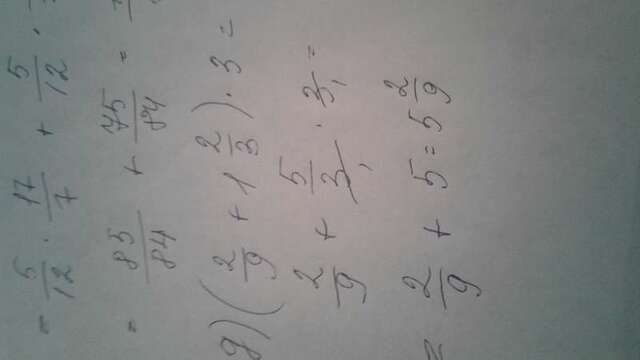 = 5/12 · 17/7 + 5/12 ·
= 85/84 + 75/84 =
g) (2/9 + 1 2/3) · 3 =
2/9 + 5/3 · 3 =
= 2/9 + 5 = 5 2/9